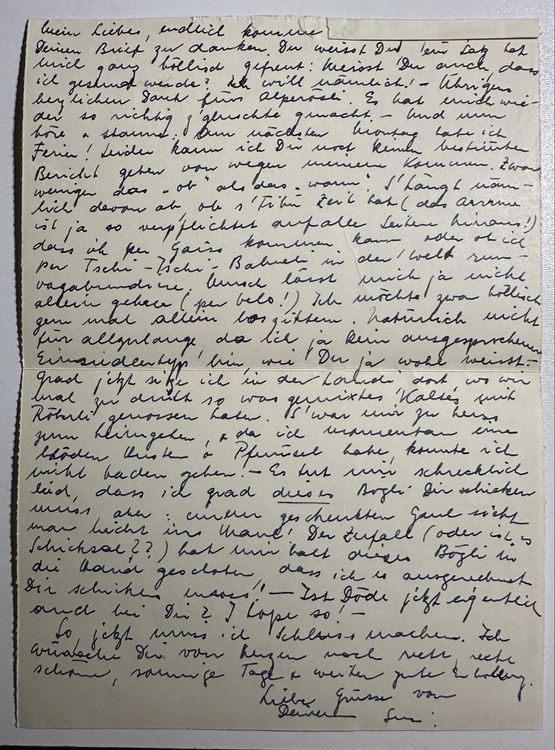 Mein Liebes, endlich komme
Deinen Brief zu danken. Du weisst Du 'ein Satz hat
mich ganz höllisch gefreut: Weisst Du auch dass
ich gesund werde? Ich will nämlich! – Übrigens
herzlichen Dank fürs Alperösli. Es hat mich wie-
der so richtig "gluschte" gmacht. – Und nun
höre & staune: Am nächsten Montag habe ich
Ferien! Leider kann ich Dir noch keinen bestimmten
Bericht geben von wegen meinem Kommen. Zwar
weniger das "ob" als das "wann". S'hängt näm-
lich davon ab ob s'Fibu Zeit hat (das arme
ist ja so verpflichtet auf alle Seiten hinaus!)
dass ich per Gaiss kommen kann oder ob ich
per Tschi-Tschi-Bahneli in der Welt rum-
vagabundiere. Mensch lässt mich ja nicht
allein gehen (per Velo!) Ich möchte zwar höllisch
gern mal allein loszittern. Natürlich nicht
für allzulange da ich ja kein ausgesprochener
Einsiedlertyp bin, wie Du ja wohl weisst. –
Grad jetzt sitze ich in der Landi dort, wo wir
mal zu dritt so was gemixtes Kaltes mit
Röhrli genossen haben. S'war mir zu heiss
zum heimgehen, & da ich momentan eine
blöden Husten & Pfnüsel habe, konnte ich
nicht baden gehen. – Es tut mir schrecklich
leid, dass ich grad dieses Bögli Dir schicken
muss, aber: einem geschenkten Gaul sieht
man nicht ins Maul! Der Zufall (oder ist's
Schicksal??) hat mir halt dieses Bögli in
die Hand geschoben, dass ich es ausgerechnet
Dir schicken muss!! – Ist Dödi jetzt eigentlich
auch bei Dir? I hope so! –
So, jetzt muss ich Schluss machen. Ich
wünsche Dir von Herzen noch recht, recht
schöne, sonnige Tage & weiter gute Erholung.
Liebe Grüsse von
Deinem